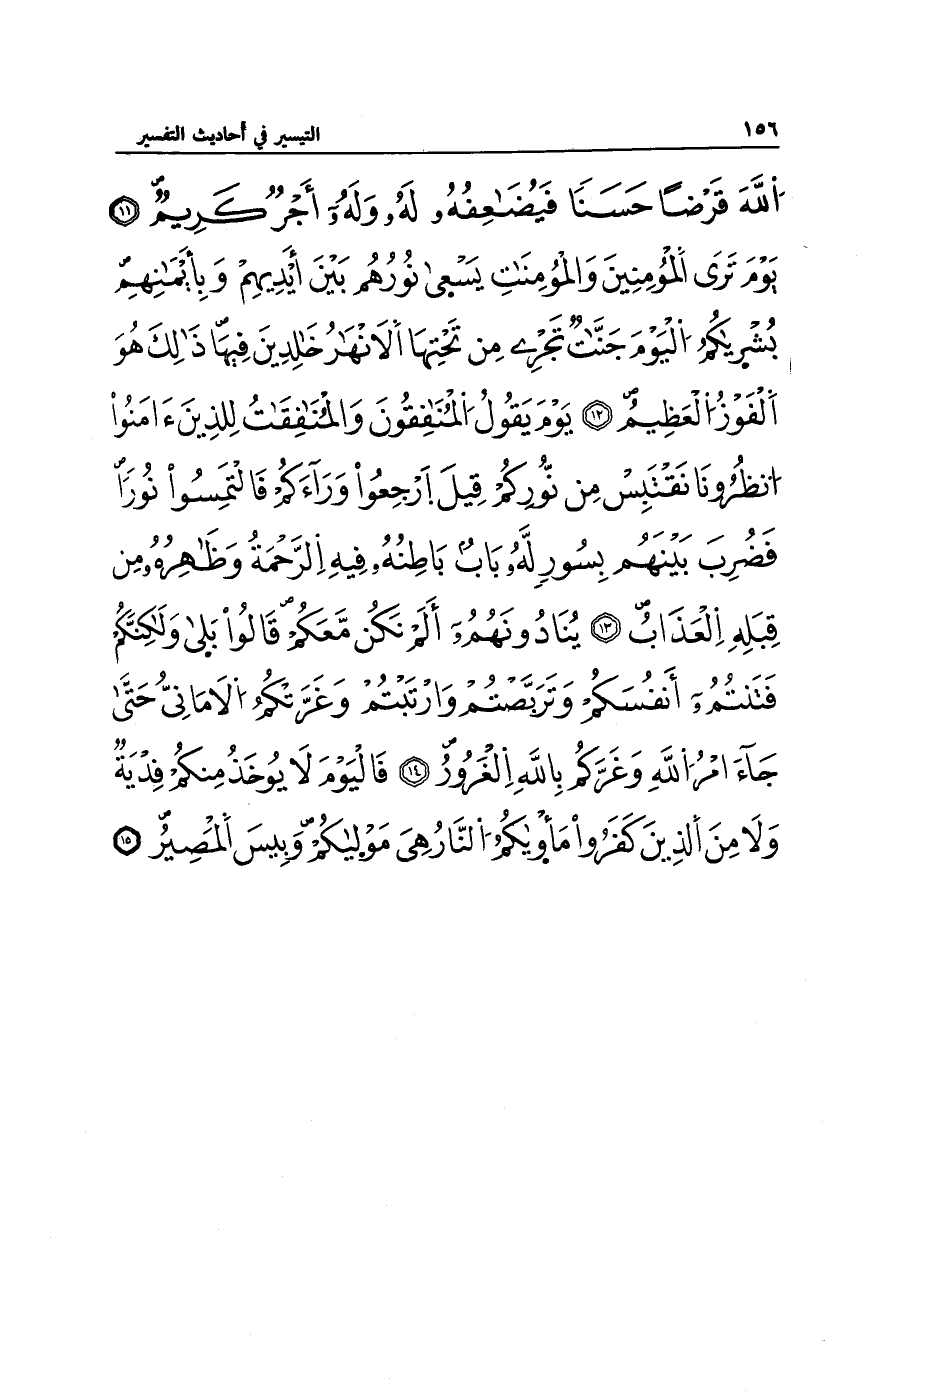 ١٥٦ التيسير في أحاديث التفسير
اَ۬للَّهَ قَرْضاً حَسَناً فَيُضَٰعِفُهُۥ لَهُۥ وَلَهُۥٓ أَجْرٞ كَرِيمٞۖ ⑪
يَوْمَ تَرَى اَ۬لْمُؤْمِنِينَ وَالْمُؤْمِنَٰتِ يَسْعَىٰ نُورُهُم بَيْنَ أَيْدِيهِمْ وَبِأَيْمَٰنِهِمۖ
بُشْر۪يٰكُمُ اُ۬لْيَوْمَ جَنَّٰتٞ تَجْرِے مِن تَحْتِهَا اَ۬لَانْهَٰرُ خَٰلِدِينَ فِيهَاۖ ذَٰلِكَ هُوَ
اَ۬لْفَوْزُ اُ۬لْعَظِيمُۖ ⑫ يَوْمَ يَقُولُ اُ۬لْمُنَٰفِقُونَ وَالْمُنَٰفِقَٰتُ لِلذِينَ ءَامَنُواْ
اُ۟نظُرُونَا نَقْتَبِسْ مِن نُّورِكُمْ قِيلَ اَ۪رْجِعُواْ وَرَآءَكُمْ فَالْتَمِسُواْ نُوراٗۖ
فَضُرِبَ بَيْنَهُم بِسُورٖ لَّهُۥ بَابُۢ بَاطِنُهُۥ فِيهِ اِ۬لرَّحْمَةُ وَظَٰهِرُهُۥ مِن
قِبَلِهِ اِ۬لْعَذَابُۖ ⑬ يُنَادُونَهُمُۥٓ أَلَمْ نَكُن مَّعَكُمْۖ قَالُواْ بَلَىٰ وَلَٰكِنَّكُمْ
فَتَنتُمُۥٓ أَنفُسَكُمْ وَتَرَبَّصْتُمْ وَارْتَبْتُمْ وَغَرَّتْكُمُ اُ۬لَامَانِيُّ حَتَّىٰ
جَآءَ امْرُ اُ۬للَّهِ وَغَرَّكُم بِاللَّهِ اِ۬لْغَرُورُۖ ⑭ فَالْيَوْمَ لَا يُوخَذُ مِنكُمْ فِدْيَةٞ
وَلَا مِنَ اَ۬لذِينَ كَفَرُواْۖ مَأْو۪يٰكُمُ اُ۬لنَّارُ هِيَ مَوْل۪يٰكُمْۖ وَبِيسَ اَ۬لْمَصِيرُۖ ⑮